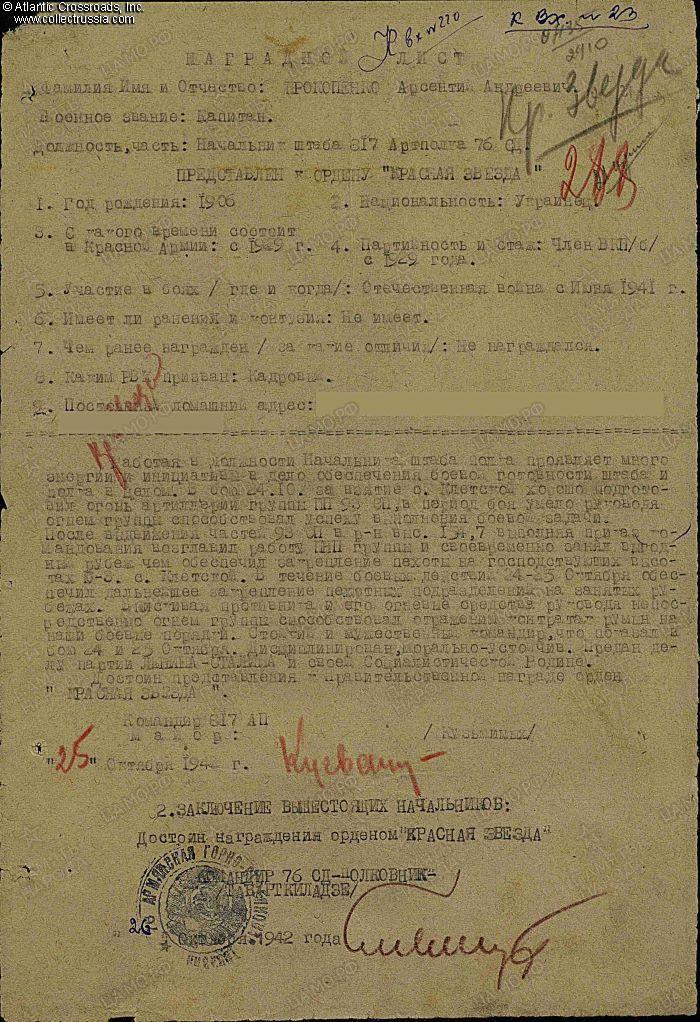 © Atlantic Crossroads, Inc.
www.collectrussia.com
К вх № 270
К вх № 23
НАГРАДНОЙ ЛИСТ
Кр. Звезда
Фамилия Имя и Отчество: ПРОКОПЕНКО Арсентий Андреевич.
Военное звание: Капитан.
Должность,часть: Начальник штаба 817 Артполка 76 СД.
ПРЕДСТАВЛЕН к ОРДЕНУ "КРАСНАЯ ЗВЕЗДА"
288
1. Год рождения: 1906
2. Национальность: Украинец.
3. С какого времени состоит
в Красной Армии: с 1929 г.
4. Партийность и стаж: Член ВКП/б/
с 1929 года.
5. Участие в боях / где и когда/: Отечественная война с Июня 1941 г.
6. Имеет ли ранения и контузия: Не имеет.
7. Чем ранее награжден / за какие отличия/: Не награждался.
8. Каким РВК призван: Кадровый.
9. Постоянный домашний адрес:
Работая в должности Начальника штаба полка проявляет много
энергии и инициативы в дело обеспечения боевой готовности штаба и
полка в целом. В бою 24.10. за взятие с. Клетской хорошо подгото-
вил огонь артиллерии группы ПП 93 СП,в период боя умело руководя
огнем группы способствовал успеху выполнения боевой задачи.
После выдвижения частей 93 СП в р-н выс. 134,7 выполняя приказ ко-
мандования возглавил работу ПНП группы и своевременно занял выгод-
ный рубеж чем обеспечил закрепление пехоты на господствующих высо-
тах Ю-З. с. Клетской. В течение боевых действий 24-25 Октября обес-
печил дальнейшее закрепление пехотных подразделений на занятых ру-
бежах. Выискивая противника и его огневые средства руководя непос-
редственно огнем группы способствовал отражению контратак румын на
наши боевые порядки. Стойкий и мужественный командир,что показал в
бою 24 и 25 Октября. Дисциплинирован,морально-устойчив. Предан де-
лу партии ЛЕНИНА-СТАЛИНА и своей Социалистической Родине.
Достоин представления к Правительственной награде орден
" КРАСНАЯ ЗВЕЗДА ".
Командир 817 АП
майор:
/ Кузьминых/
"25" Октября 1942 г.
2.ЗАКЛЮЧЕНИЕ ВЫШЕСТОЯЩИХ НАЧАЛЬНИКОВ:
Достоин награждения орденом"КРАСНАЯ ЗВЕЗДА"
КОМАНДИР 76 СД-ПОЛКОВНИК-
/ТАВАРТКИЛАДЗЕ/
26 Октября 1942 года
АРМЯНСКАЯ ГОРНО-
ЦАМО.РФ